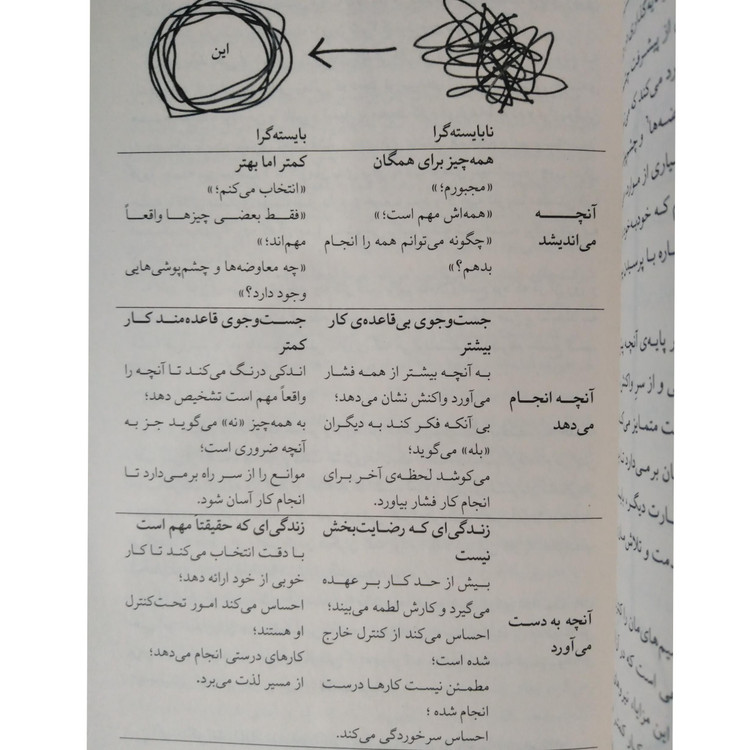 این
نابایسته‌گرا
بایسته‌گرا
آنچه
می‌اندیشد
همه‌چیز برای همگان
«مجبورم؛»
«همه‌اش مهم است؛»
«چگونه می‌توانم همه را انجام
بدهم؟»
کمتر اما بهتر
«انتخاب می‌کنم؛»
«فقط بعضی چیزها واقعاً
مهم‌اند؛»
«چه معاوضه‌ها و چشم‌پوشی‌هایی
وجود دارد؟»
آنچه انجام
می‌دهد
جست‌وجوی بی‌قاعده‌ی کار
بیشتر
به آنچه بیشتر از همه فشار
می‌آورد واکنش نشان می‌دهد؛
بی آنکه فکر کند به دیگران
«بله» می‌گوید؛
می‌کوشد لحظه‌ی آخر برای
انجام کار فشار بیاورد.
جست‌وجوی قاعده‌مند کار
کمتر
اندکی درنگ می‌کند تا آنچه را
واقعاً مهم است تشخیص دهد؛
به همه‌چیز «نه» می‌گوید جز به
آنچه ضروری است؛
موانع را از سر راه برمی‌دارد تا
انجام کار آسان شود.
آنچه به دست
می‌آورد
زندگی‌ای که رضایت‌بخش
نیست
بیش از حد کار بر عهده
می‌گیرد و کارش لطمه می‌بیند؛
احساس می‌کند از کنترل خارج
شده است؛
مطمئن نیست کارها درست
انجام شده ؛
احساس سرخوردگی می‌کند.
زندگی‌ای که حقیقتاً مهم است
با دقت انتخاب می‌کند تا کار
خوبی از خود ارائه دهد؛
احساس می‌کند امور تحت‌کنترل
او هستند؛
کارهای درستی انجام می‌دهد؛
از مسیر لذت می‌برد.